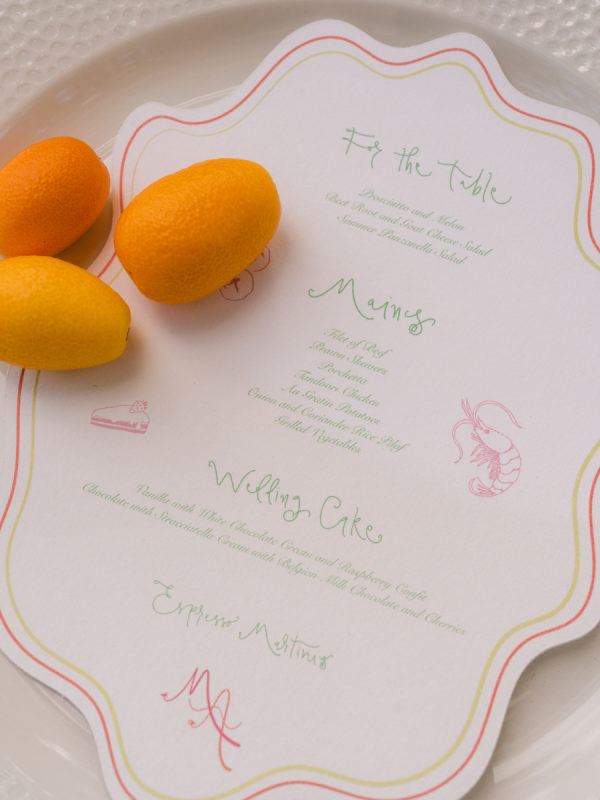 For the Table
Prosciutto and Melon
Beet Root and Goat Cheese Salad
Summer Panzanella Salad
Mains
Filet of Beef
Prawn Skewers
Porchetta
Tandoori Chicken
Au Gratin Potatoes
Onion and Coriander Rice Pilef
Grilled Vegetables
Wedding Cake
Vanilla with White Chocolate Cream and Raspberry Confit
Chocolate with Stracciatella Cream with Belgian Milk Chocolate and Cherries
Espresso Martinis
MA